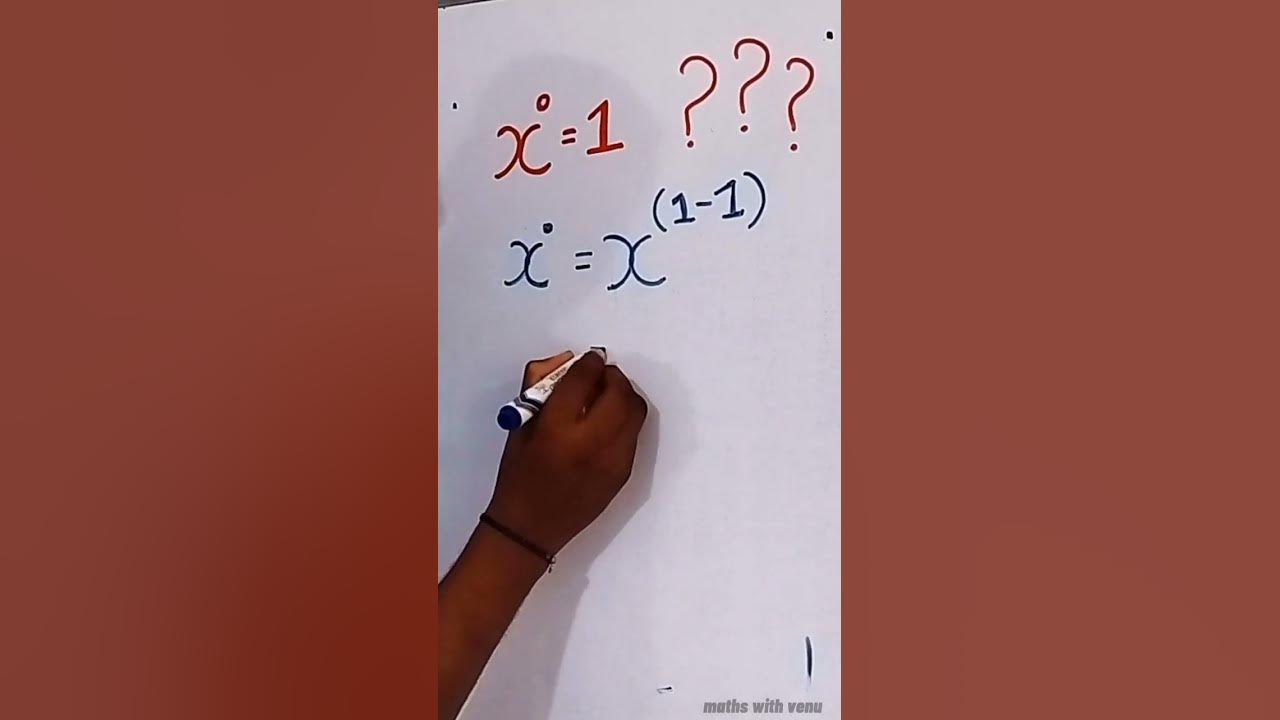 x⁰=1 ???
x⁰ = x⁽¹⁻¹⁾
maths with venu